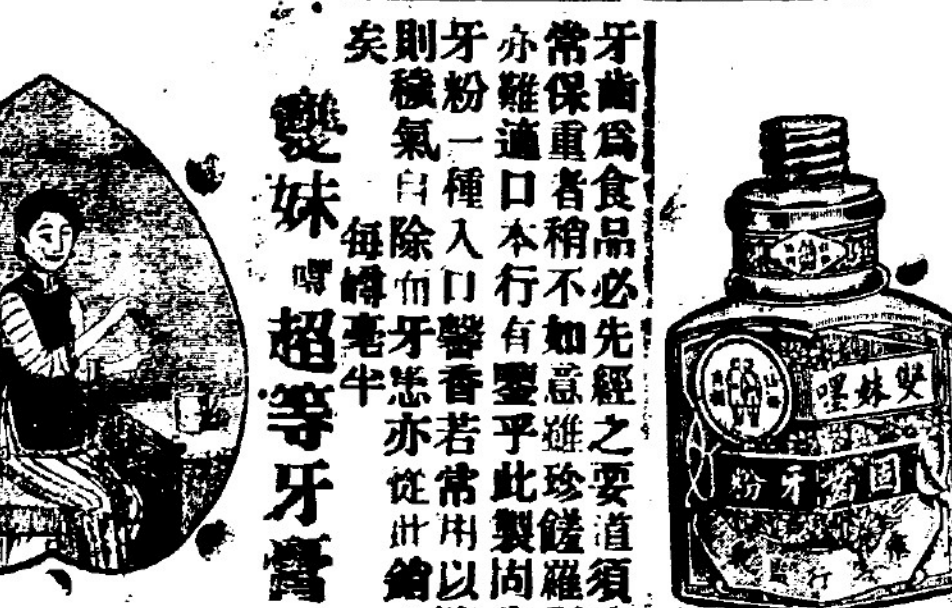 牙齒爲食品必先經之要道須
常保重者稍不如意雖珍饈羅
亦難適口本行有鑒乎此製尚
牙粉一種入口馨香若常用以
則穢氣自除而牙患亦從此銷
矣
每罇毫半
雙妹嘿超等牙膏
雙妹嘿
固齒牙粉
行